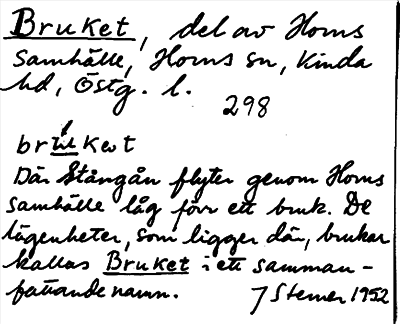 Bruket, del av Horns
samhälle, Horns sn, Kinda
hd, Östg. l.
298
Där Stångån flyter genom Horns
samhälle låg förr ett bruk. De
lägenheter, som ligger där, brukar
kallas Bruket i ett samman-
fattande namn. 1952